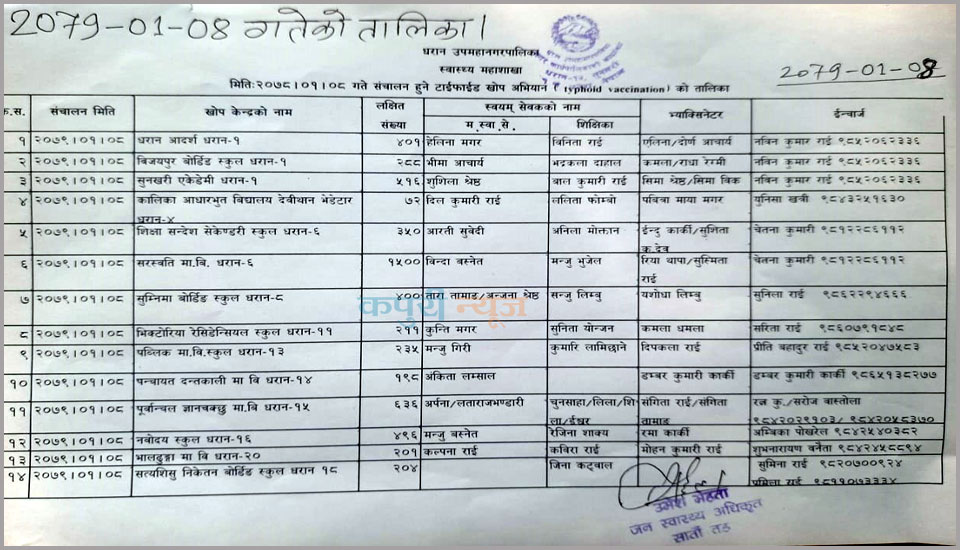 2079-01-08 गतेको तालिका।
धरान उपमहानगरपालिका
स्वास्थ्य महाशाखा
2079-01-08
मितिः२०७९।०१।०८ गते संचालन हुने टाईफाईड खोप अभियान ( typhoid vaccination) को तालिका
क्र.स. संचालन मिति खोप केन्द्रको नाम लक्षित संख्या स्वयम् सेवकको नाम भ्याक्सिनेटर ईन्चार्ज
म.स्वा.से. शिक्षिका
१ २०७९।०१।०८ धरान आदर्श धरान-१ ४०१ हेलिना मगर बिनिता राई एलिना/दोर्ण आचार्य नबिन कुमार राई ९८५२०६२३३६
२ २०७९।०१।०८ बिजयपुर बोर्डिङ स्कुल धरान-१ २८८ भीमा आचार्य भद्रकला दाहाल कमला/राधा रेग्मी नबिन कुमार राई ९८५२०६२३३६
३ २०७९।०१।०८ सुनखरी एकेडेमी धरान-१ ५१६ शुशिला श्रेष्ठ बाल कुमारी राई सिमा श्रेष्ठ/सिमा बिक नबिन कुमार राई ९८५२०६२३३६
४ २०७९।०१।०८ कालिका आधारभुत बिद्यालय देवीथान भेडेटार धरान-४ ७२ दिल कुमारी राई ललिता फोम्बो पबित्रा माया मगर युनिसा खत्री ९८४३२५१६३०
५ २०७९।०१।०८ शिक्षा सन्देश सेकेण्डरी स्कुल धरान-६ ३५० आरती सुवेदी अनिला मोक्तान ईन्दु कार्की/सुशिता क.देव चेतना कुमारी ९८१२२८६११२
६ २०७९।०१।०८ सरस्वति मा.बि. धरान-६ १५०० बिन्दा बस्नेत मन्जु भुजेल रिया थापा/सुस्मिता राई चेतना कुमारी ९८१२२८६११२
७ २०७९।०१।०८ सुम्निमा बोर्डिङ स्कुल धरान-८ ४०० तारा तामाङ/अन्जना श्रेष्ठ सन्जु लिम्बु यशोधा लिम्बु सुनिला राई ९८६२२९४६६६
कपुरी न्यूज
८ २०७९।०१।०८ भिक्टोरिया रेसिडेन्सियल स्कुल धरान-११ २११ कुन्ति मगर सुनिता योन्जन कमला धमला सरिता राई ९८६०७९१८४८
९ २०७९।०१।०८ पब्लिक मा.बि.स्कुल धरान-१३ २३५ मन्जु गिरी कुमारि लामिछाने दिपकला राई प्रीति बहादुर राई ९८५२०४७५८३
१० २०७९।०१।०८ पन्चायत दन्तकाली मा बि धरान-१४ १९८ अंकिता लम्साल डम्बर कुमारी कार्की डम्बर कुमारी कार्की ९८६५१३८२७७
११ २०७९।०१।०८ पूर्वान्चल ज्ञानचक्षु मा.बि धरान-१५ ६३६ अर्पना/लताराजभण्डारी चुनसाहा/लिला/शिला/ईश्वर संगिता राई/संगिता तामाङ रत्न कु./सरोज वास्तोला ९८४२०२९१०३/ ९८४२०५८३७०
१२ २०७९।०१।०८ नवोदय स्कुल धरान-१६ ४९६ मन्जु बस्नेत रेजिना शाक्य रमा कार्की अम्बिका पोखरेल ९८४२५४०३८२
१३ २०७९।०१।०८ भालढुङ्गा मा बि धरान-२० २०१ कल्पना राई कबिरा राई मोहन कुमारी राई शुभनारायण वनैता ९८४२४५८८९४
१४ २०७९।०१।०८ सत्यशिसु निकेतन बोर्डिङ स्कुल धरान १८ २०४ जिना कटवाल सुमिना राई ९८२०७००९२४
प्रमिला राई ९८११०७३३३४
उमेश मेहता
जन स्वास्थ्य अधिकृत
सातौं तह